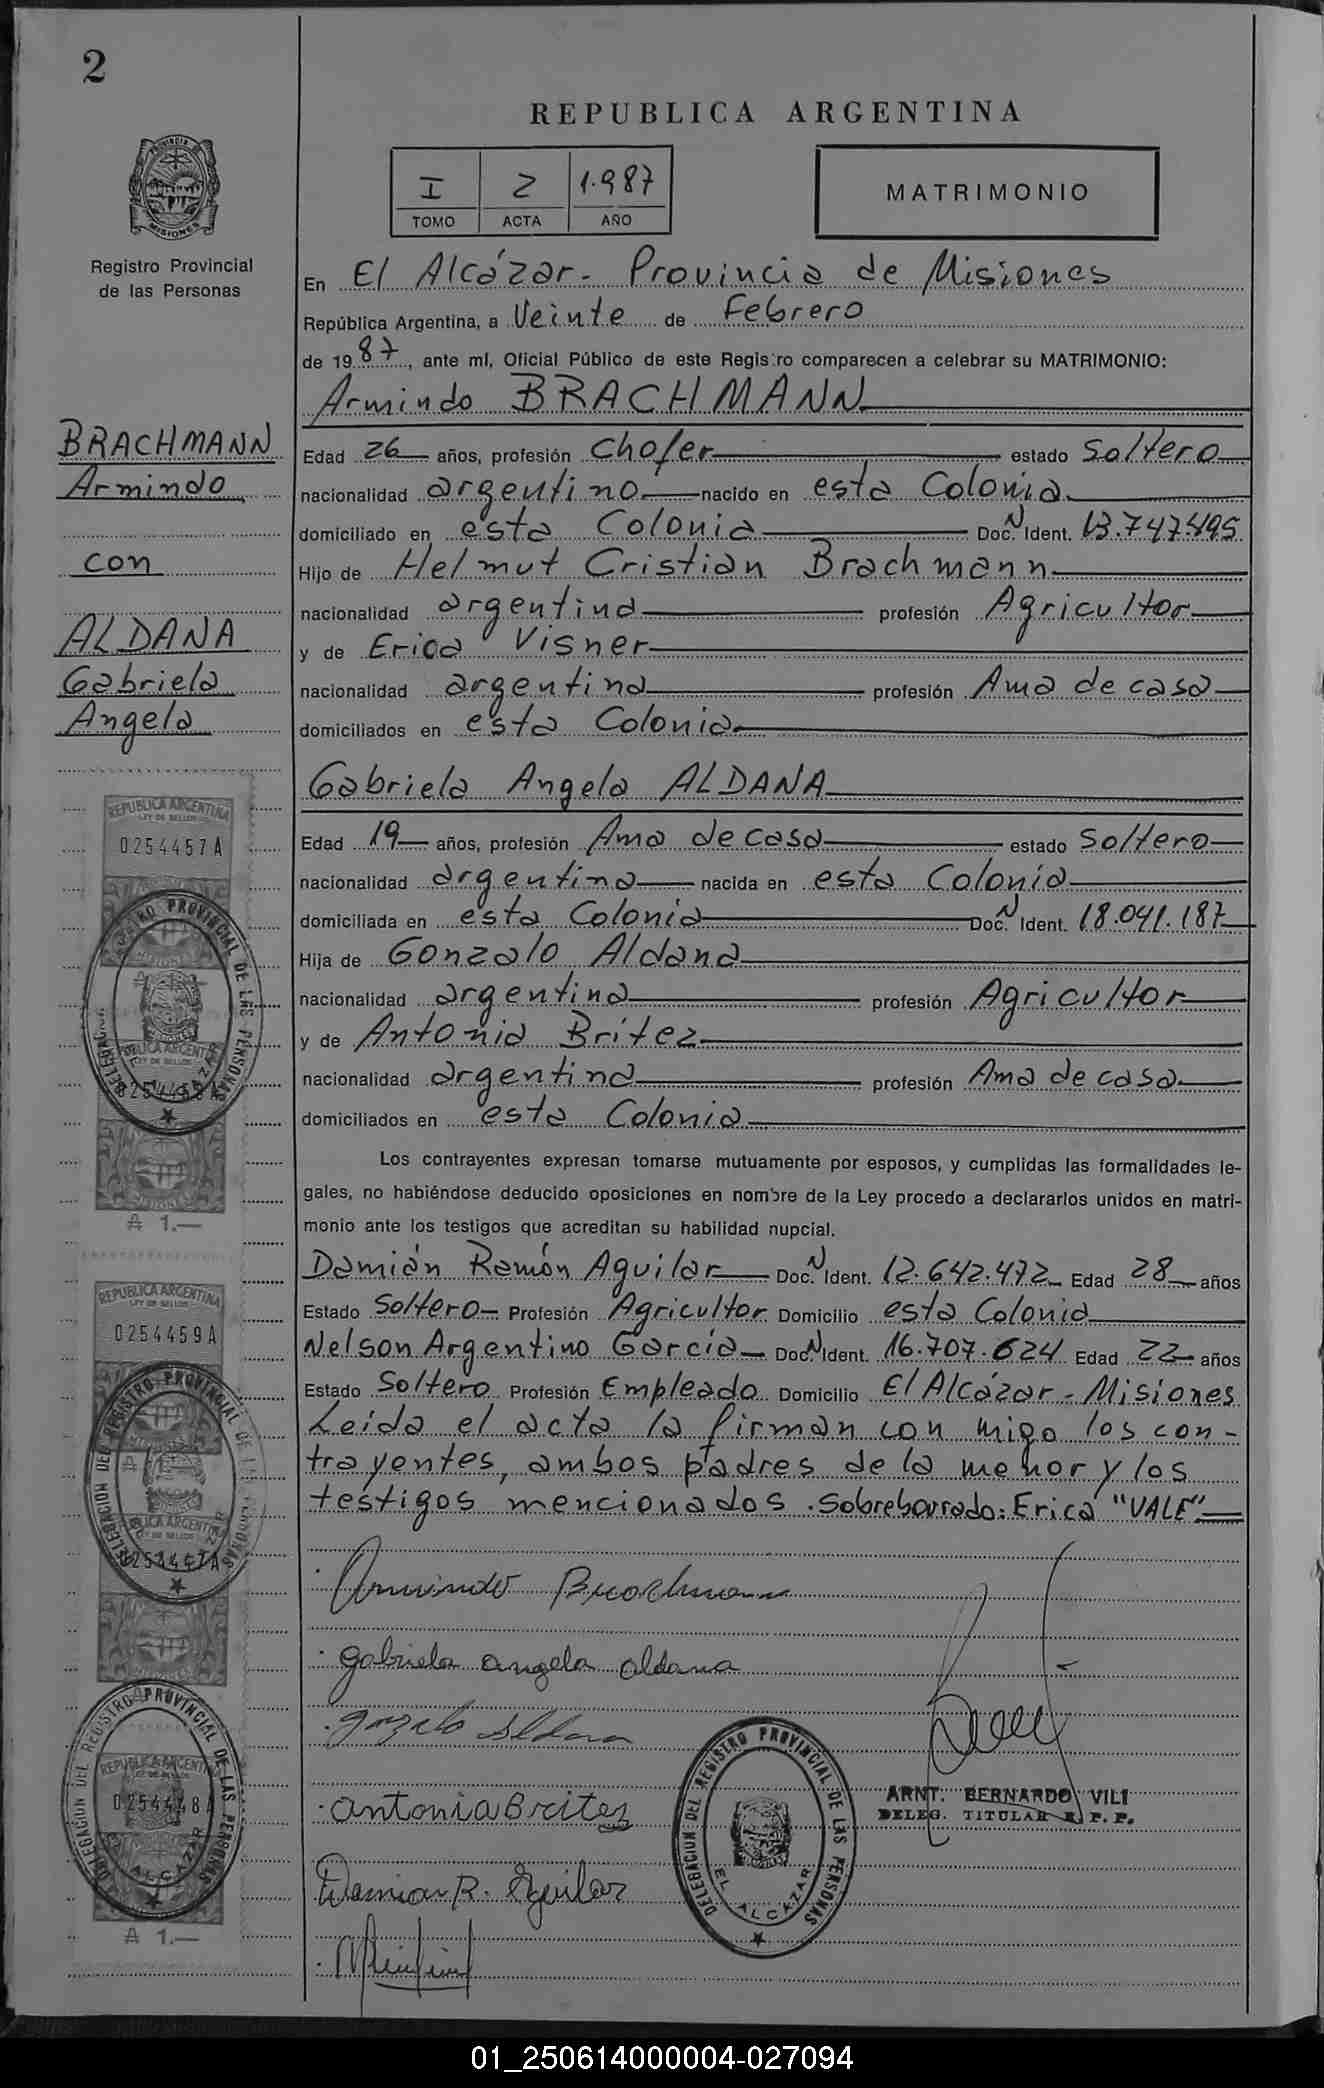 2
REPUBLICA ARGENTINA
I 2 1.987
TOMO ACTA AÑO
MATRIMONIO
PROVINCIA DE MISIONES
Registro Provincial
de las Personas
En El Alcázar - Provincia de Misiones
República Argentina, a Veinte de Febrero
de 1987, ante mí, Oficial Público de este Registro comparecen a celebrar su MATRIMONIO:
Armindo BRACHMANN
BRACHMANN
Armindo
con
ALDANA
Gabriela
Angela
Edad 26 años, profesión Chofer estado Soltero
nacionalidad argentino nacido en esta Colonia
domiciliado en esta Colonia Doc. N Ident. 13.747.495
Hijo de Helmut Cristian Brachmann
nacionalidad argentina profesión Agricultor
y de Erica Visner
nacionalidad argentina profesión Ama de casa
domiciliados en esta Colonia
Gabriela Angela ALDANA
Edad 19 años, profesión Ama de casa estado Soltero
nacionalidad argentina nacida en esta Colonia
domiciliada en esta Colonia Doc. N Ident. 18.041.187
Hija de Gonzalo Aldana
nacionalidad argentina profesión Agricultor
y de Antonia Britez
nacionalidad argentina profesión Ama de casa
domiciliados en esta Colonia
Los contrayentes expresan tomarse mutuamente por esposos, y cumplidas las formalidades le-
gales, no habiéndose deducido oposiciones en nombre de la Ley procedo a declararlos unidos en matri-
monio ante los testigos que acreditan su habilidad nupcial.
Damián Ramón Aguilar Doc. N Ident. 12.642.472 Edad 28 años
Estado Soltero Profesión Agricultor Domicilio esta Colonia
Nelson Argentino García Doc. N Ident. 16.707.624 Edad 22 años
Estado Soltero Profesión Empleado Domicilio El Alcázar - Misiones
Leida el acta la firman con migo los con-
trayentes, ambos padres de la menor y los
testigos mencionados. Sobreborrado: Erica "VALE"
Armindo Brachmann
gabriela angela aldana
gonzalo Aldana
antonia Britez
Damian R. Aguilar
ARNT. BERNARDO VILI
DELEG. TITULAR R. P. P.
DELEGACION DEL REGISTRO PROVINCIAL DE LAS PERSONAS
EL ALCAZAR
REPUBLICA ARGENTINA
LEY DE SELLOS
0254457A
A 1.—
REPUBLICA ARGENTINA
LEY DE SELLOS
0254459A
DELEGACION DEL REGISTRO PROVINCIAL DE LAS PERSONAS
A 1.—
01_250614000004-027094